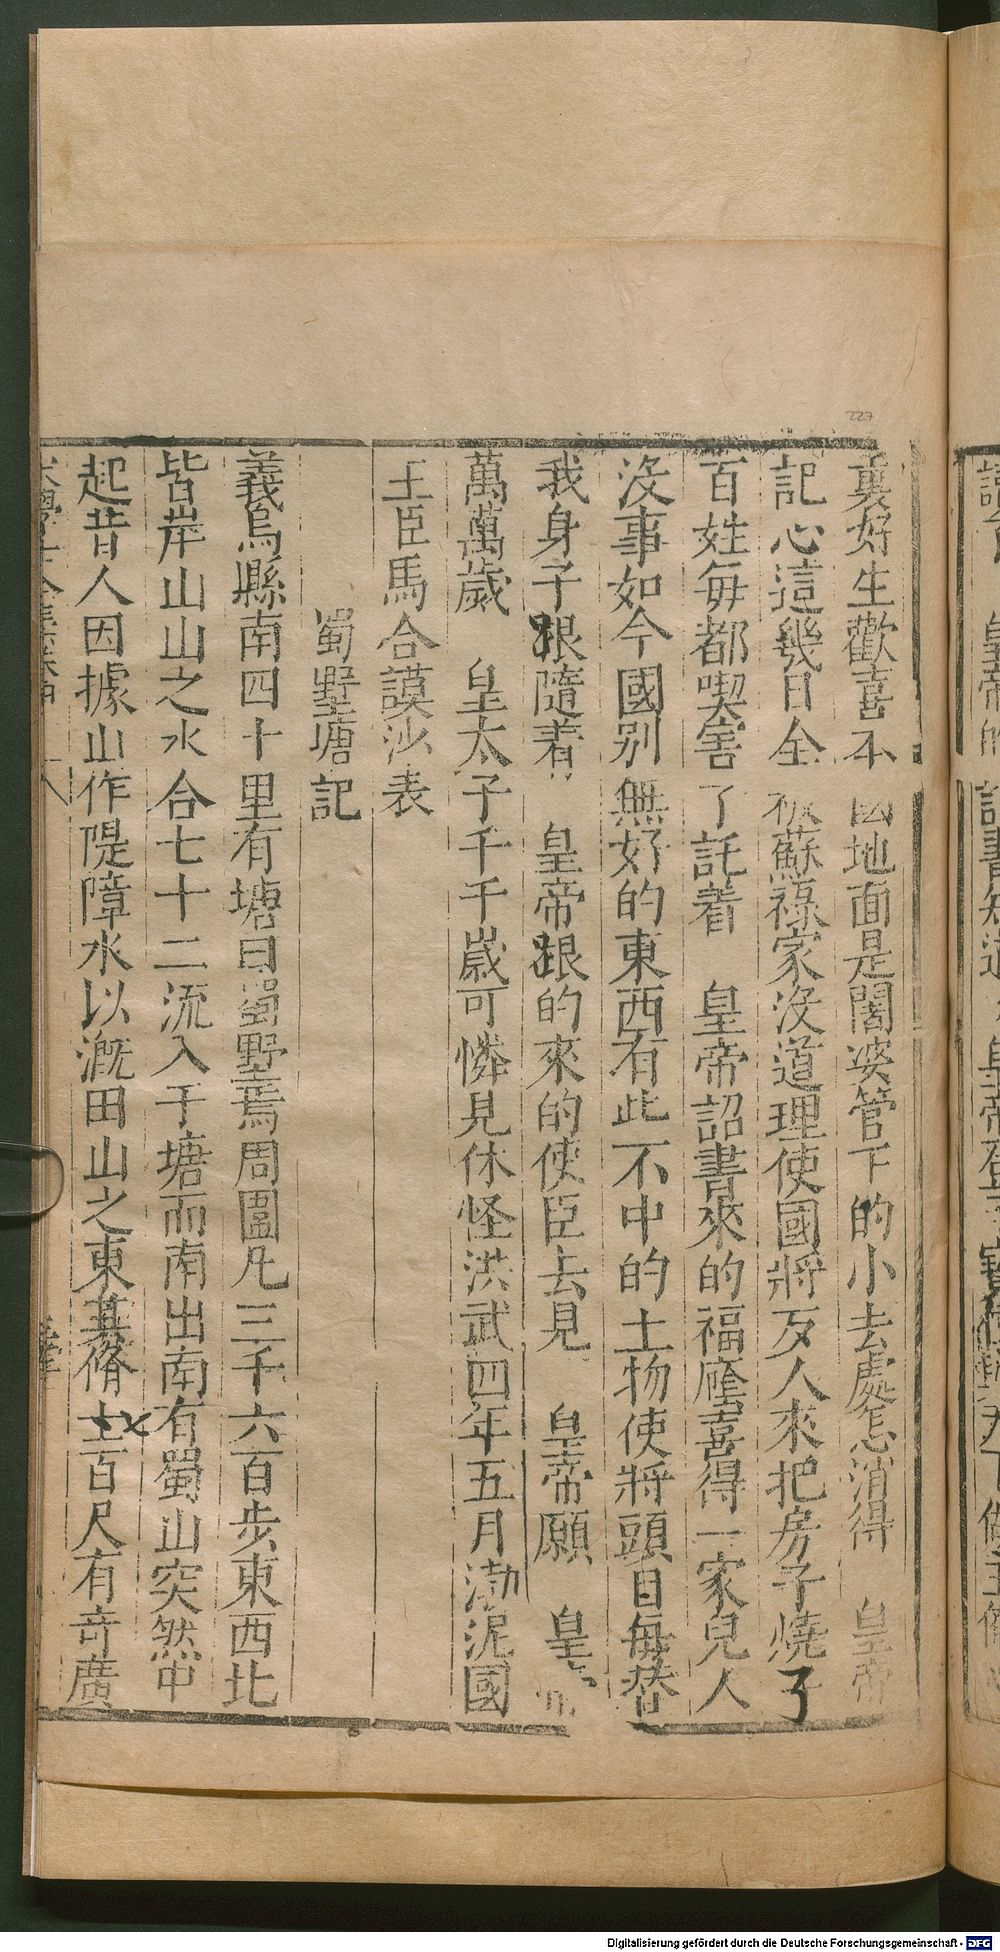 裏好生歡喜本國地面是闍婆管下的小去處怎消得　皇帝
記心這幾日全被蘇祿家沒道理使國將歹人來把房子燒了
百姓每都喫害了託着　皇帝詔書來的福廕喜得一家兒人
沒事如今國別無好的東西有些不中的土物使將頭目每替
我身子跟隨着　皇帝跟的來的使臣去見　皇帝願　皇帝
萬萬歲　皇太子千千歲可憐見休怪洪武四年五月渤泥國
王臣馬合謨沙表
蜀墅塘記
義烏縣南四十里有塘曰蜀野墅焉周圍凡三千六百步東西北
皆岸山山之水合七十二流入于塘而南出南有蜀山突然中
起昔人因據山作隄障水以溉田山之東其脩士百尺有奇廣
227
Digitalisierung gefördert durch die Deutsche Forschungsgemeinschaft - DFG